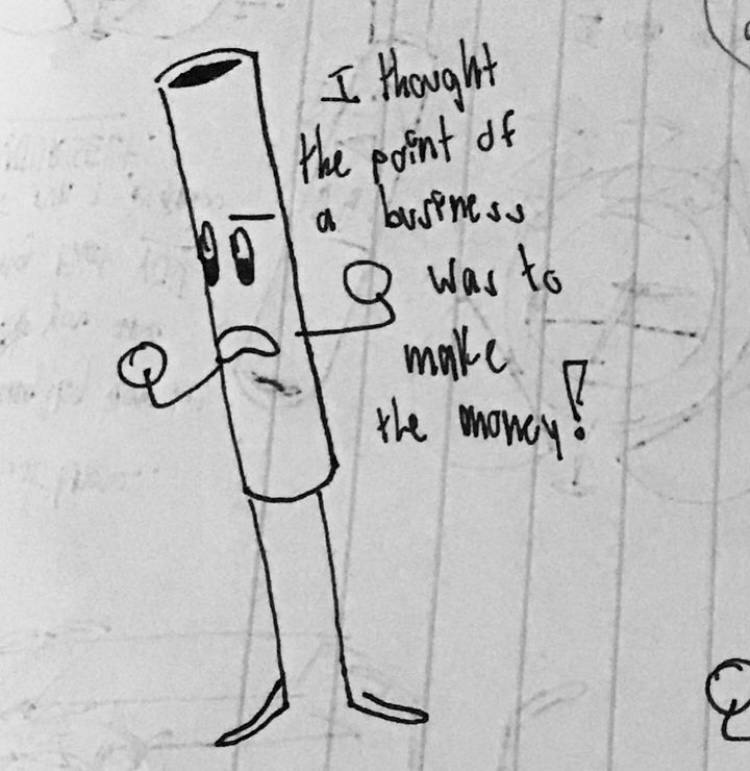 I thought
the point of
a business
was to
make
the money!